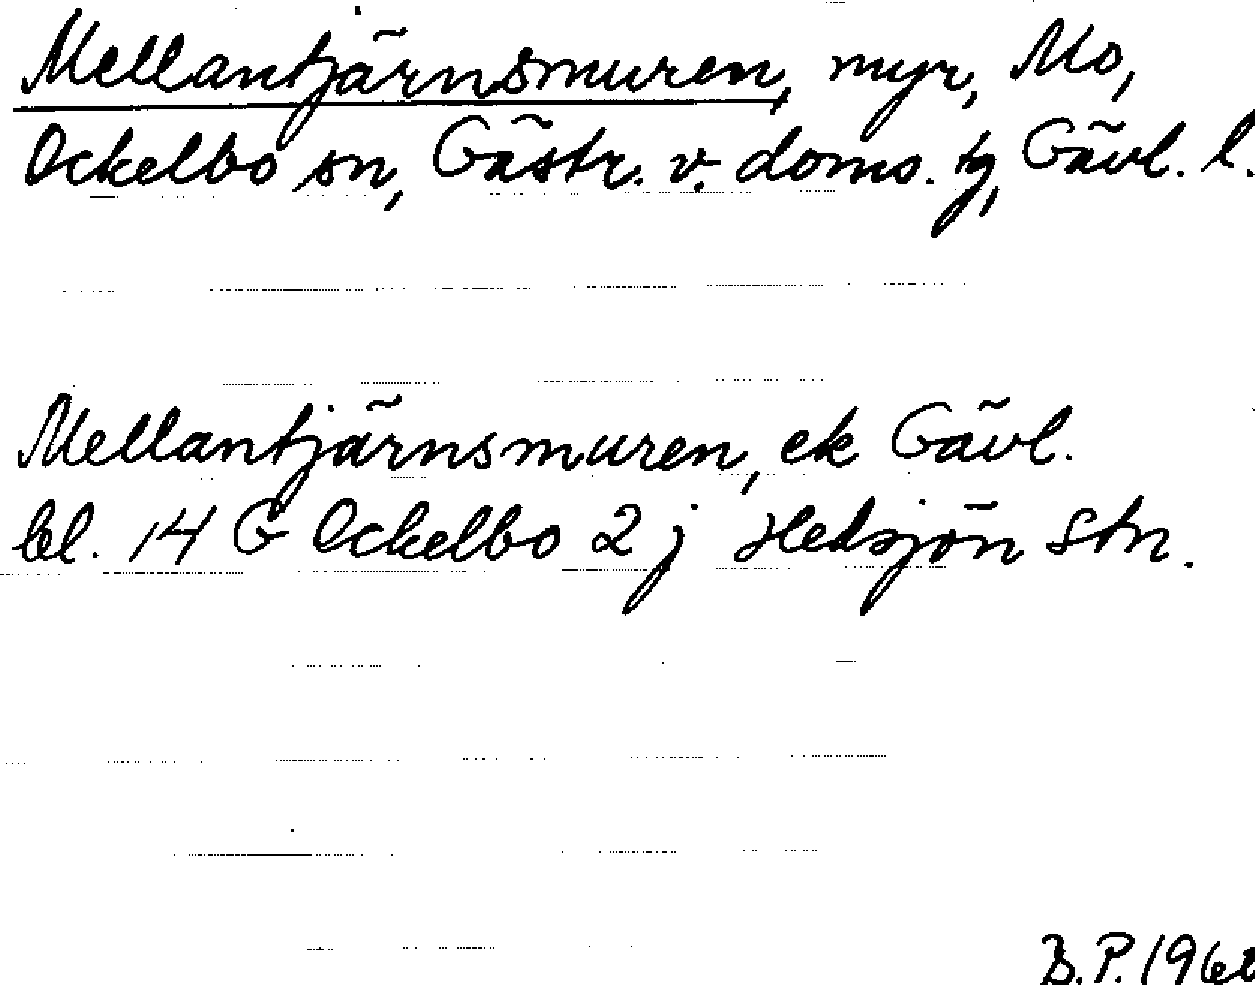 Mellantjärnsmuren, myr, Mo,
Ockelbo sn, Gästr. v. doms. tg, Gävl. l.
Mellantjärnsmuren, ek Gävl.
bl. 14 G Ockelbo 2 j Hedsjön Stn.
B.P. 1968